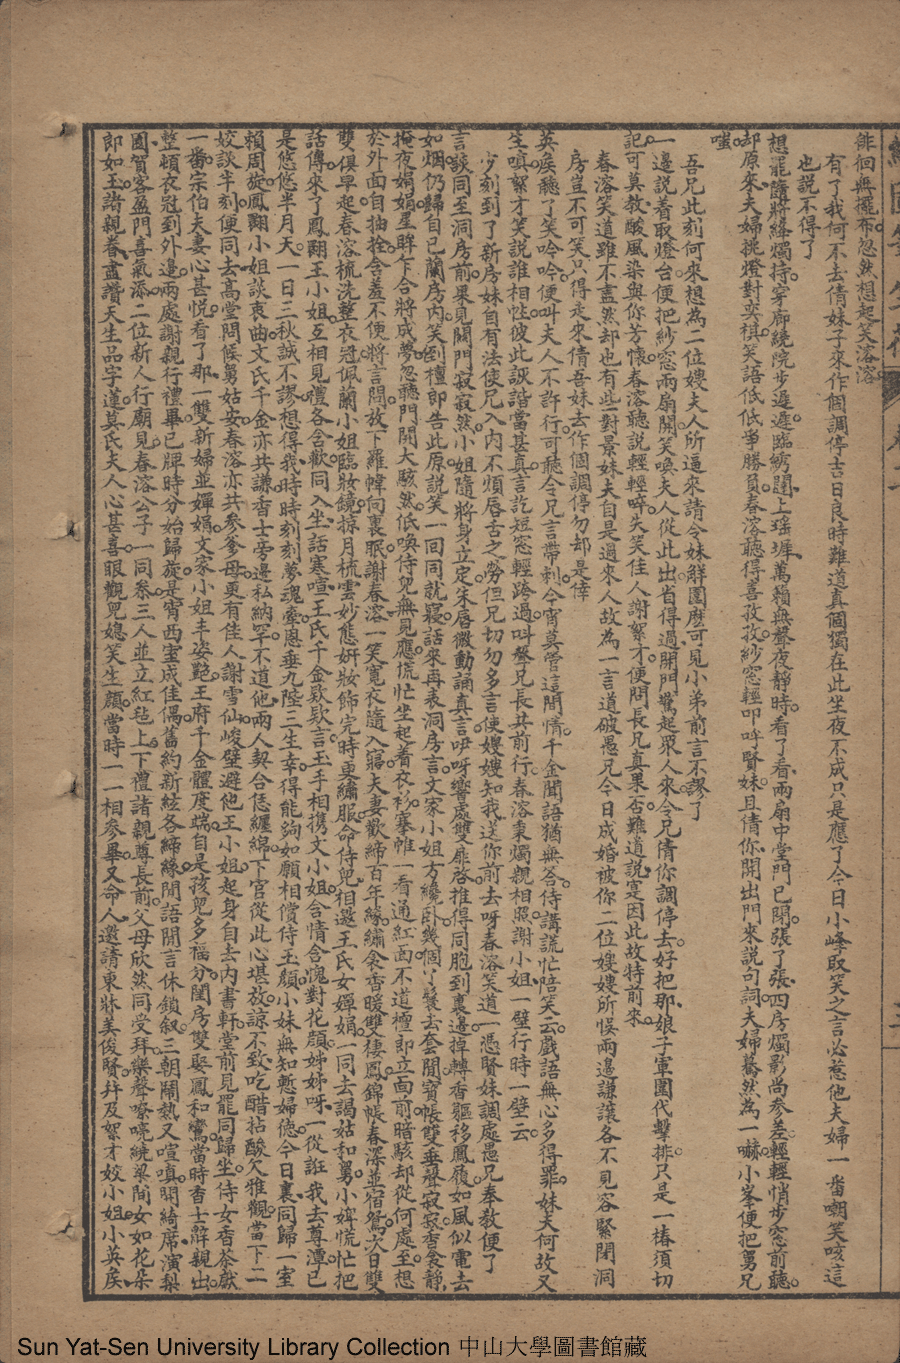 徘徊無擺布忽然想起笑溶溶
有了我何不去倩妹子來作個調停吉日良時難道真個獨在此坐夜不成只是應了今日小峰取笑之言必惹他夫婦一番嘲笑咳這
也説不得了
想罷擕將絳燭持穿廊繞院步遲遲臨綉闥上瑤墀萬籟無聲夜靜時看了看兩扇中堂門已閉張了張四房燭影尚參差輕輕悄步窓前聽
却原來夫婦挑燈對奕棋笑語低低爭勝負春溶聽得喜孜孜紗窓輕叩呼賢妹且倩你開出門來説句詞夫婦驀然為一嚇小峯便把舅兄
嗤
吾兄此刻何來想為二位嫂夫人所逼來請令妹觧圍麽可見小弟前言不謬了
一邊説着取燈台便把紗窓兩扇開笑喚夫人從此出省得過開門驚起眾人來令兄倩你調停去好把那娘子軍圍代擊排只是一樁須切
記可莫教酸風染與你芳懷春溶聽説輕輕啐失笑佳人謝絮才便問長兄真果否難道説寔因此故特前來
春溶笑道雖不盡然却也有些對景妹夫自是過來人故為一言道破愚兄今日成婚被你二位嫂嫂所悞兩邊謙讓各不見容緊閉洞
房豈不可笑只得走來倩吾妹去作個調停勿却是倖
英矦聽了笑吟吟便叫夫人不許行可聽令兄言帶刺今宵莫管這閒情千金聞語猶無答侍講謊忙陪笑云戲語無心多得罪妹夫何故又
生嗔絮才笑説誰相怪彼此詼諧當甚真言訖短窓輕跨過叫聲兄長共前行春溶秉燭親相照謝小姐一壁行時一壁云
少刻到了新房妹自有法使兄入内不煩唇舌之勞但兄切勿多言使嫂嫂知我送你前去呀春溶笑道一憑賢妹調處愚兄奉教便了
言談同至洞房前果見關門寂寂然小姐隨將身立定朱唇微動誦真言咿呀響處雙扉啓推得同胞到裏邊掉轉香軀移鳳履如風似電去
如烟仍歸自已蘭房内笑到檀郎告此原説笑一回同就寢話來再表洞房言文家小姐方纔卧幾個丫鬟去套間寶帳雙垂聲寂寂香衾靜
掩夜娟娟星眸乍合將成夢忽聽門開大駭然低喚侍兒無見應慌忙坐起着衣衫搴帷一看通紅面不道檀郎立面前暗駭却從何處至想
於外面自抽拴含羞不便將言問放下羅幃向裏眠謝春溶一笑寬衣隨入寤夫妻歡締百年緣繡衾香暖雙棲鳳錦帳春深並宿鴛次日雙
雙俱早起春溶梳洗整衣冠佩蘭小姐臨妝鏡掠月梳雲妙態妍妝飾完時更繡服命侍兒相邀王氏女嬋娟一同去謁姑和舅小婢慌忙把
話傳來了鳳翮王小姐互相見禮各含歡同入坐話寒喧王氏千金欵欵言玉手相携文小姐含情含愧對花顔姊姊呀一從誑我去尊潭已
是悠悠半月天一日三秋誠不謬想得我時時刻刻夢魂牽恩垂九陛三生幸得能彀如願相償侍玉顔小妹無知慙婦德今日裏同歸一室
賴周旋鳳翮小姐談衷曲文氏千金亦共謙香士旁邊私納罕不道他兩人契合恁纏綿下官從此心堪放諒不致吃醋拈酸欠雅觀當下二
姣談半刻便同去高堂問候舅姑安春溶亦共參爹母更有佳人謝雪仙峻壁避他王小姐起身自去内書軒堂前見罷同歸坐侍女香茶獻
一番宗伯夫妻心甚悦看了那一雙新婦並嬋娟文家小姐丰姿艶王府千金體度端自是孩兒多福分閨房雙娶鳳和鸞當時香士辭親出
整頓衣冠到外邊兩處謝親行禮畢已牌時分始歸旋是宵西室成佳偶舊約新絃各締緣閒語閒言休鎖叙三朝鬧熱又喧嗔開綺席演梨
園賀客盈門喜氣添二位新人行廟見春溶公子一同叅三人並立紅毡上下禮諸親尊長前父母欣然同受拜樂聲嘹喨繞梁間女如花朵
郎如玉諸親眷盡讚天生品字蓮莫氏夫人心甚喜眼觀兒媳笑生顔當時一一相參畢又命人邀請東牀美俊賢幷及絮才姣小姐小英矦
Sun Yat-Sen University Library Collection 中山大學圖書館藏